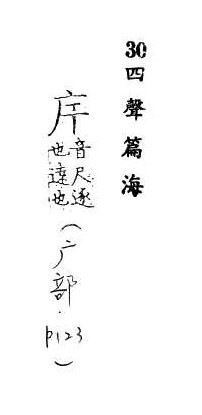 30 四聲篇海
音尺逐
也遠也
(广部.p123)